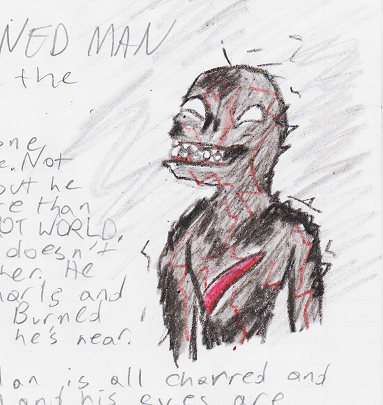 NED MAN
the
one
e. Not
out he
re than
OT WORLD.
doesn't
her. He
narls and
Burned
he's near.
an is all charred and
and his eyes are